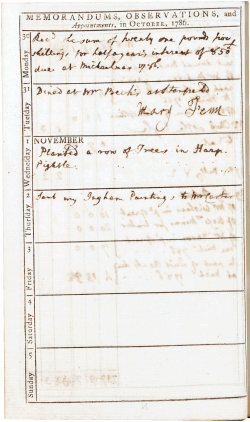 MEMORANDUMS, OBSERVATIONS, and
Appointments, in OCTOBER, 1786.
30 Monday
Rec.d the sum of twenty one pounds
shillings, for half a year's interest of £850
due at Michaelmas 1786.
31 Tuesday
Dined at Mr Beck's
Mary Penn
NOVEMBER
1 Wednesday
Planted a row of Trees in
Pightle.
2 Thursday
Sent my Ingham Paintings to Mr
3 Friday
4 Saturday
5 Sunday